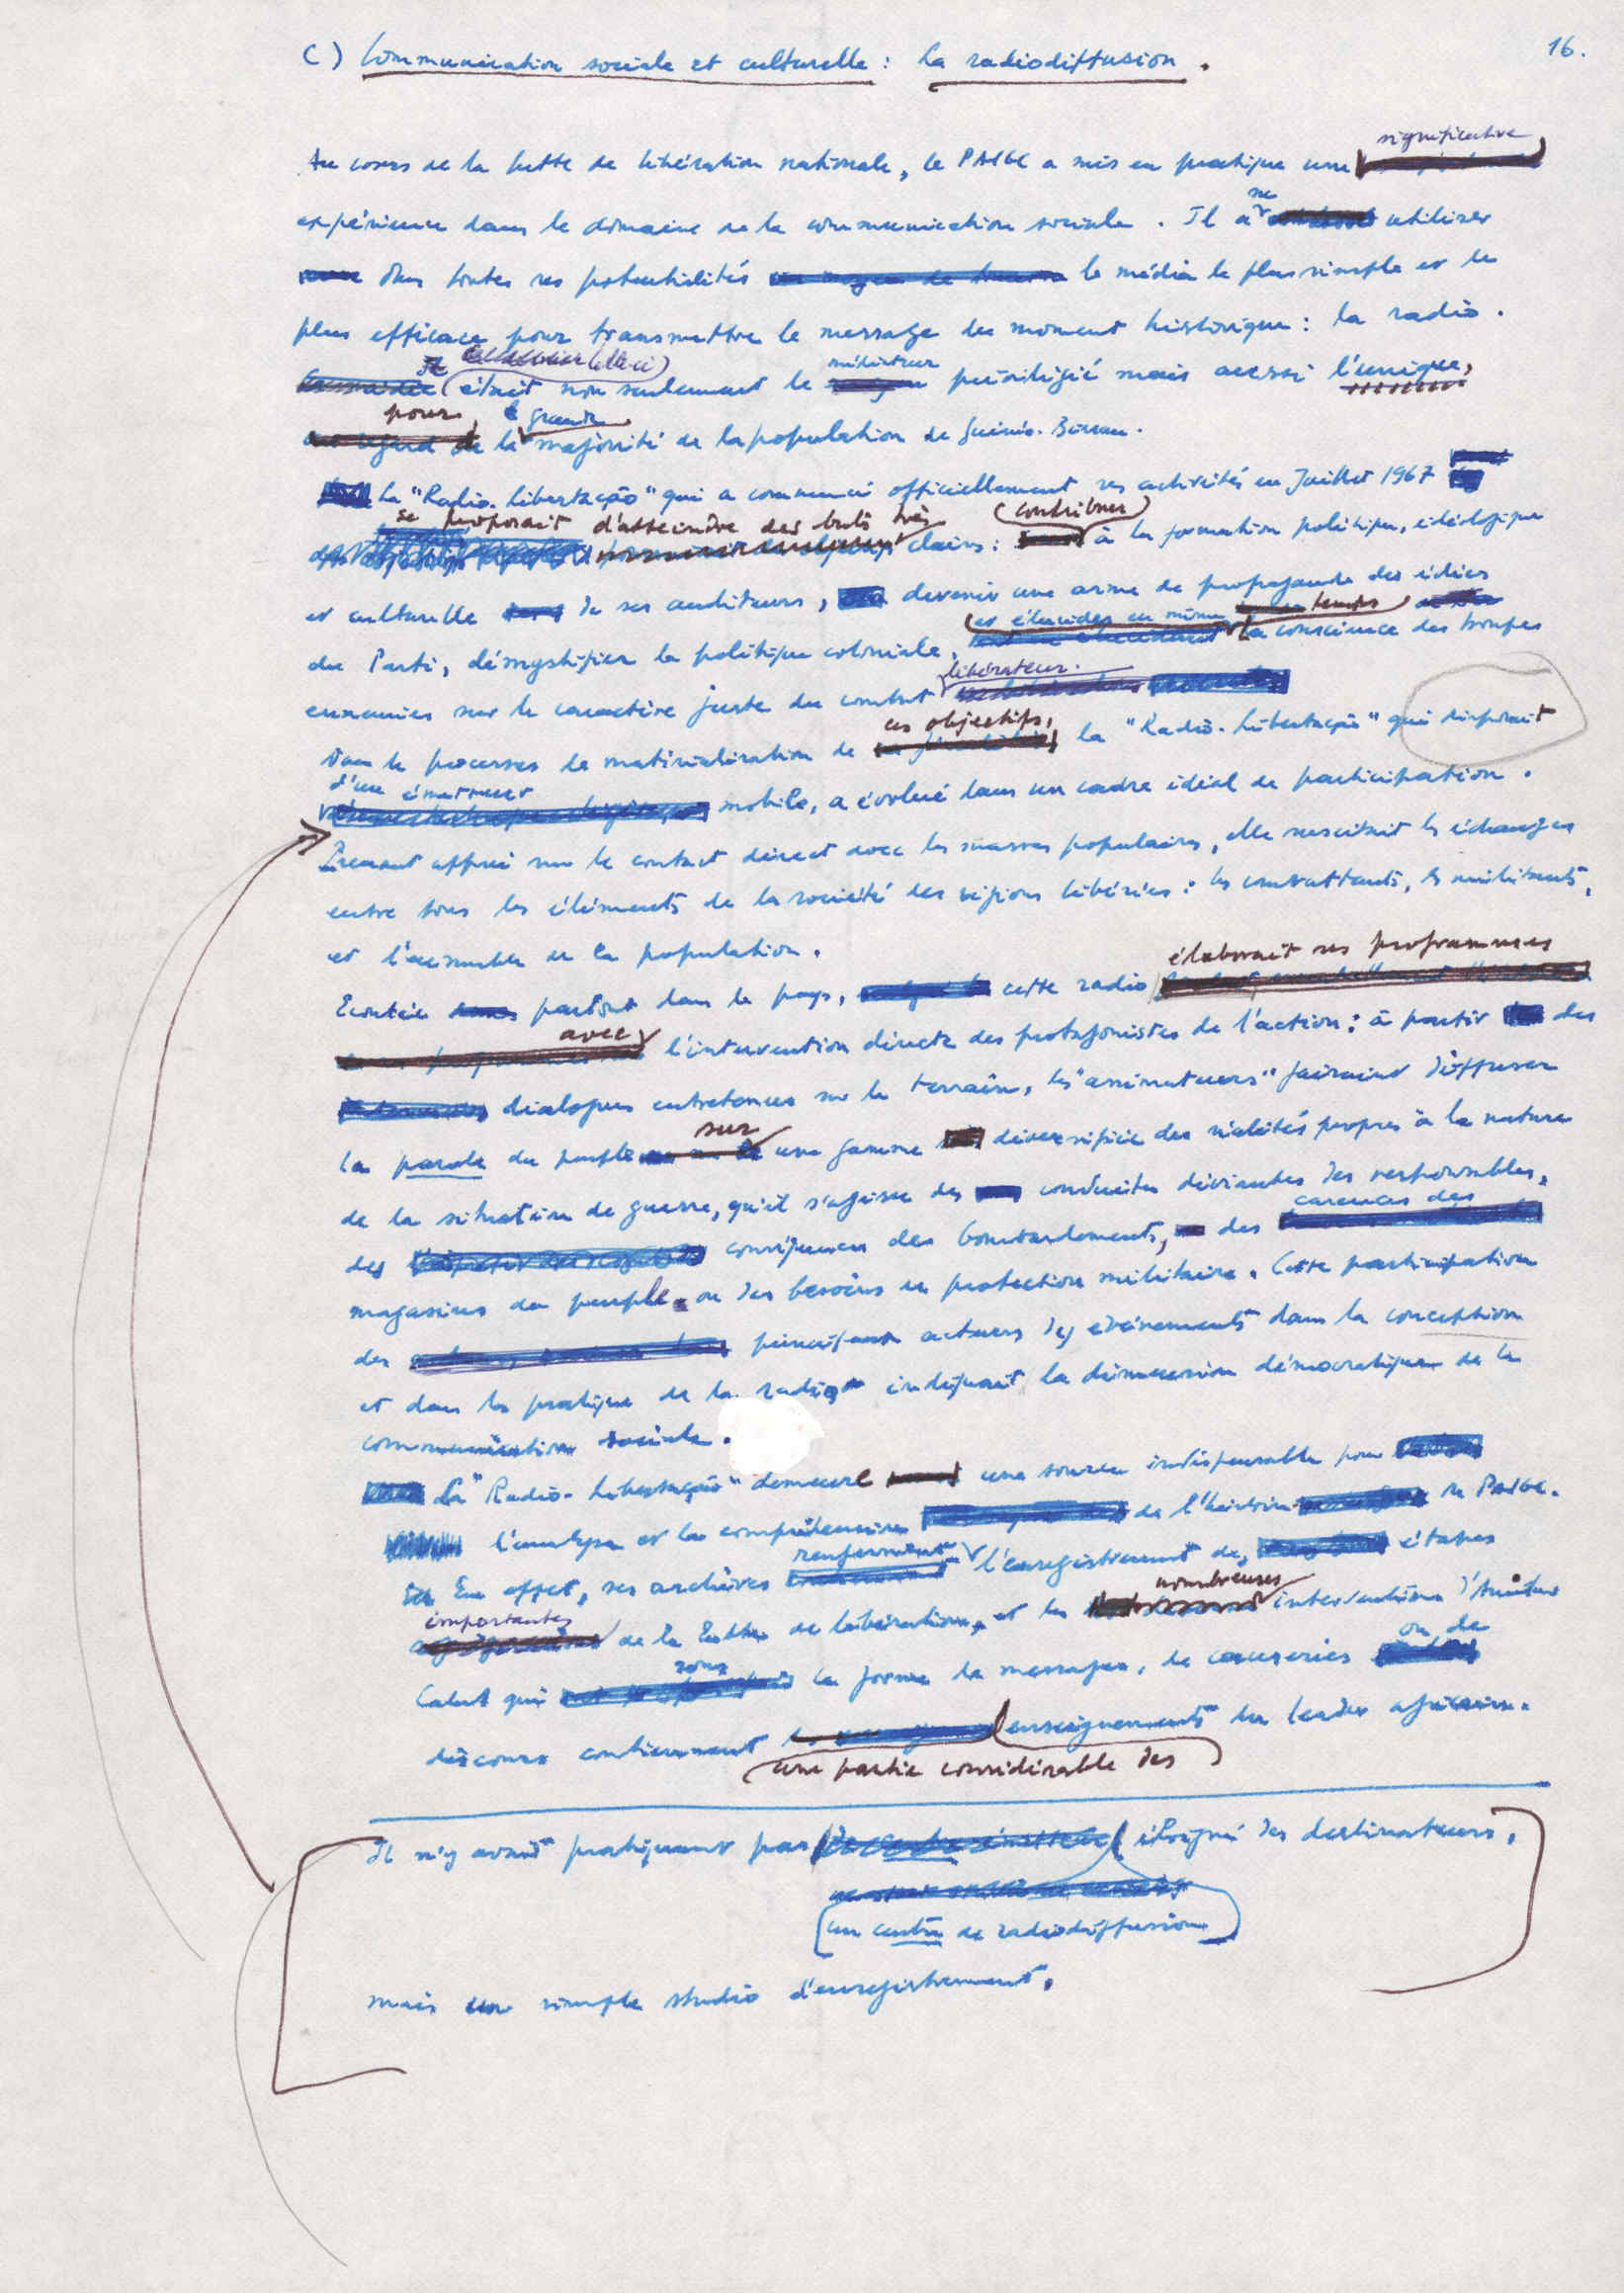 16.
C) Communication sociale et culturelle : la radiodiffusion.
significative
Au cours de la lutte de libération nationale, le PAIGC a mis en pratique une
expérience dans le domaine de la communication sociale. Il a su utiliser
dans toutes ses potentialités le média le plus simple et le
plus efficace pour transmettre le message du moment historique : la radio.
(celle-ci)
médiateur
était non seulement le privilégié mais aussi l'unique,
pour grande
la majorité de la population de Guinée-Bissau.
La "Radio-Libertação" qui a commencé officiellement ses activités en Juillet 1967
se proposait d'atteindre des buts très (contribuer)
clairs : à la formation politique, idéologique
et culturelle de ses auditeurs, devenir une arme de propagande des idées
et élucider en même temps
du Parti, démystifier la politique coloniale, la conscience des troupes
libérateur.
ennemies sur le caractère juste du combat
ces objectifs,
Dans le processus de matérialisation de la "Radio-Libertação" qui disposait
d'un émetteur
mobile, a évolué dans un cadre idéal de participation.
Prenant appui sur le contact direct avec les masses populaires, elle suscitait les échanges
entre tous les éléments de la société des régions libérées : les combattants, les militants,
et l'ensemble de la population.
élaborait ses programmes
Ecoutée partout dans le pays, cette radio
avec
l'intervention directe des protagonistes de l'action : à partir des
dialogues entretenus sur le terrain, les "animateurs" faisaient diffuser
sur
la parole du peuple une gamme diversifiée des réalités propres à la nature
de la situation de guerre, qu'il s'agisse des conduites déviantes des responsables,
carences des
des conséquences des bombardements, des
magasins du peuple, ou des besoins en protection militaire. Cette participation
des principaux acteurs des événements dans la conception
et dans la pratique de la radio indiquait la dimension démocratique de la
communication sociale.
La "Radio-Libertação" demeure une source indispensable pour
l'analyse et la compréhension de l'histoire du PAIGC.
renferment
En effet, ses archives l'enregistrement des étapes
importantes nombreuses
de la lutte de libération, et les interventions d'Amilcar
sous ou de
Cabral qui la forme de messages, de causeries
discours contiennent enseignements du leader africain.
(une partie considérable des)
Il n'y avait pratiquement pas éloigné des destinateurs,
(un centre de radiodiffusion)
mais un simple studio d'enregistrement.